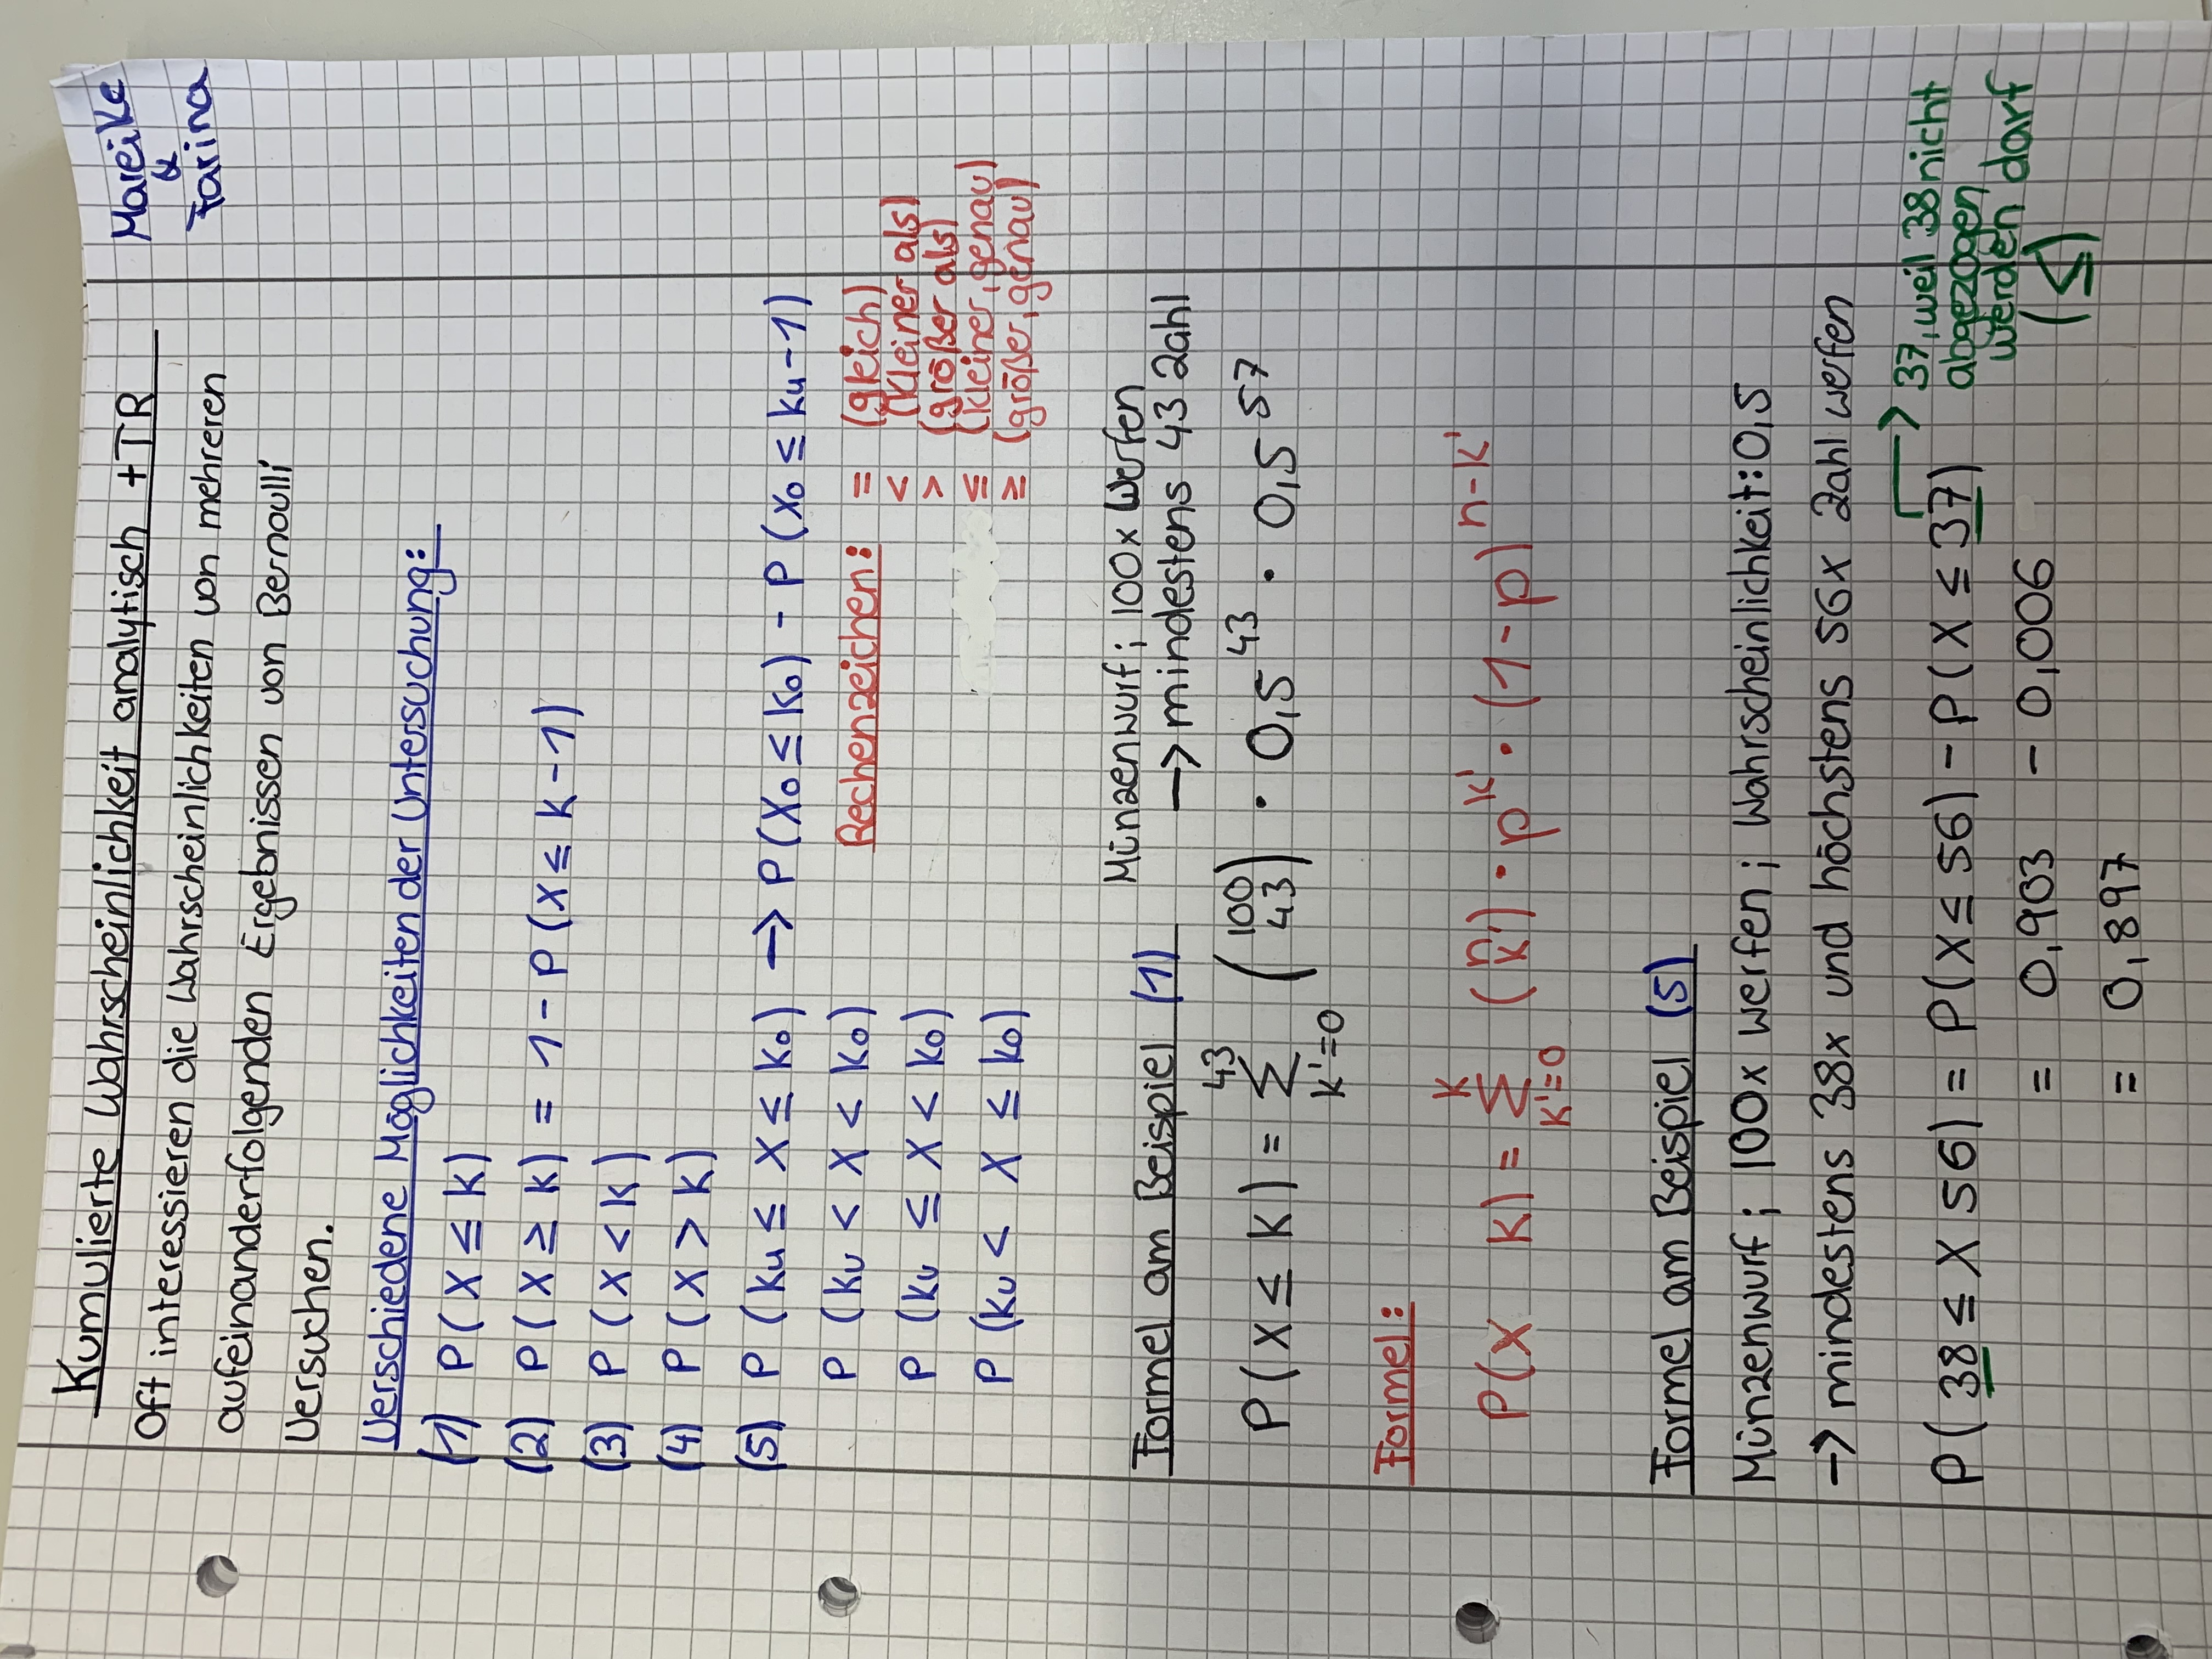 Mareike
&
Farina
Kumulierte Wahrscheinlichkeit analytisch + TR
Oft interessieren die Wahrscheinlichkeiten von mehreren
aufeinanderfolgenden Ergebnissen von Bernoulli
Versuchen.
Verschiedene Möglichkeiten der Untersuchung:
(1) P(X ≤ k)
(2) P(X ≥ k) = 1 - P(X ≤ k-1)
(3) P(X < k)
(4) P(X > k)
(5) P(ku ≤ X ≤ ko) → P(Xo ≤ ko) - P(xo ≤ ku-1)
P(ku < X < ko)
P(ku ≤ X < ko)
P(ku < X ≤ ko)
Rechenzeichen:
= (gleich)
< (kleiner als)
> (größer als)
≤ (kleiner, genau)
≥ (größer, genau)
Formel am Beispiel (1)
Münzenwurf; 100x werfen
→ mindestens 43 Zahl
P(X ≤ k) = 43 Σ k'=0 (100 43) · 0,5^43 · 0,5^57
Formel:
P(X k) = k Σ k'=0 (n k') · p^k' · (1-p)^n-k'
Formel am Beispiel (5)
Münzenwurf; 100x werfen; Wahrscheinlichkeit: 0,5
→ mindestens 38x und höchstens 56x Zahl werfen
P(38 ≤ X 56) = P(X ≤ 56) - P(X ≤ 37)
→ 37, weil 38 nicht
abgezogen
werden darf
(≤)
= 0,903 - 0,006
= 0,897